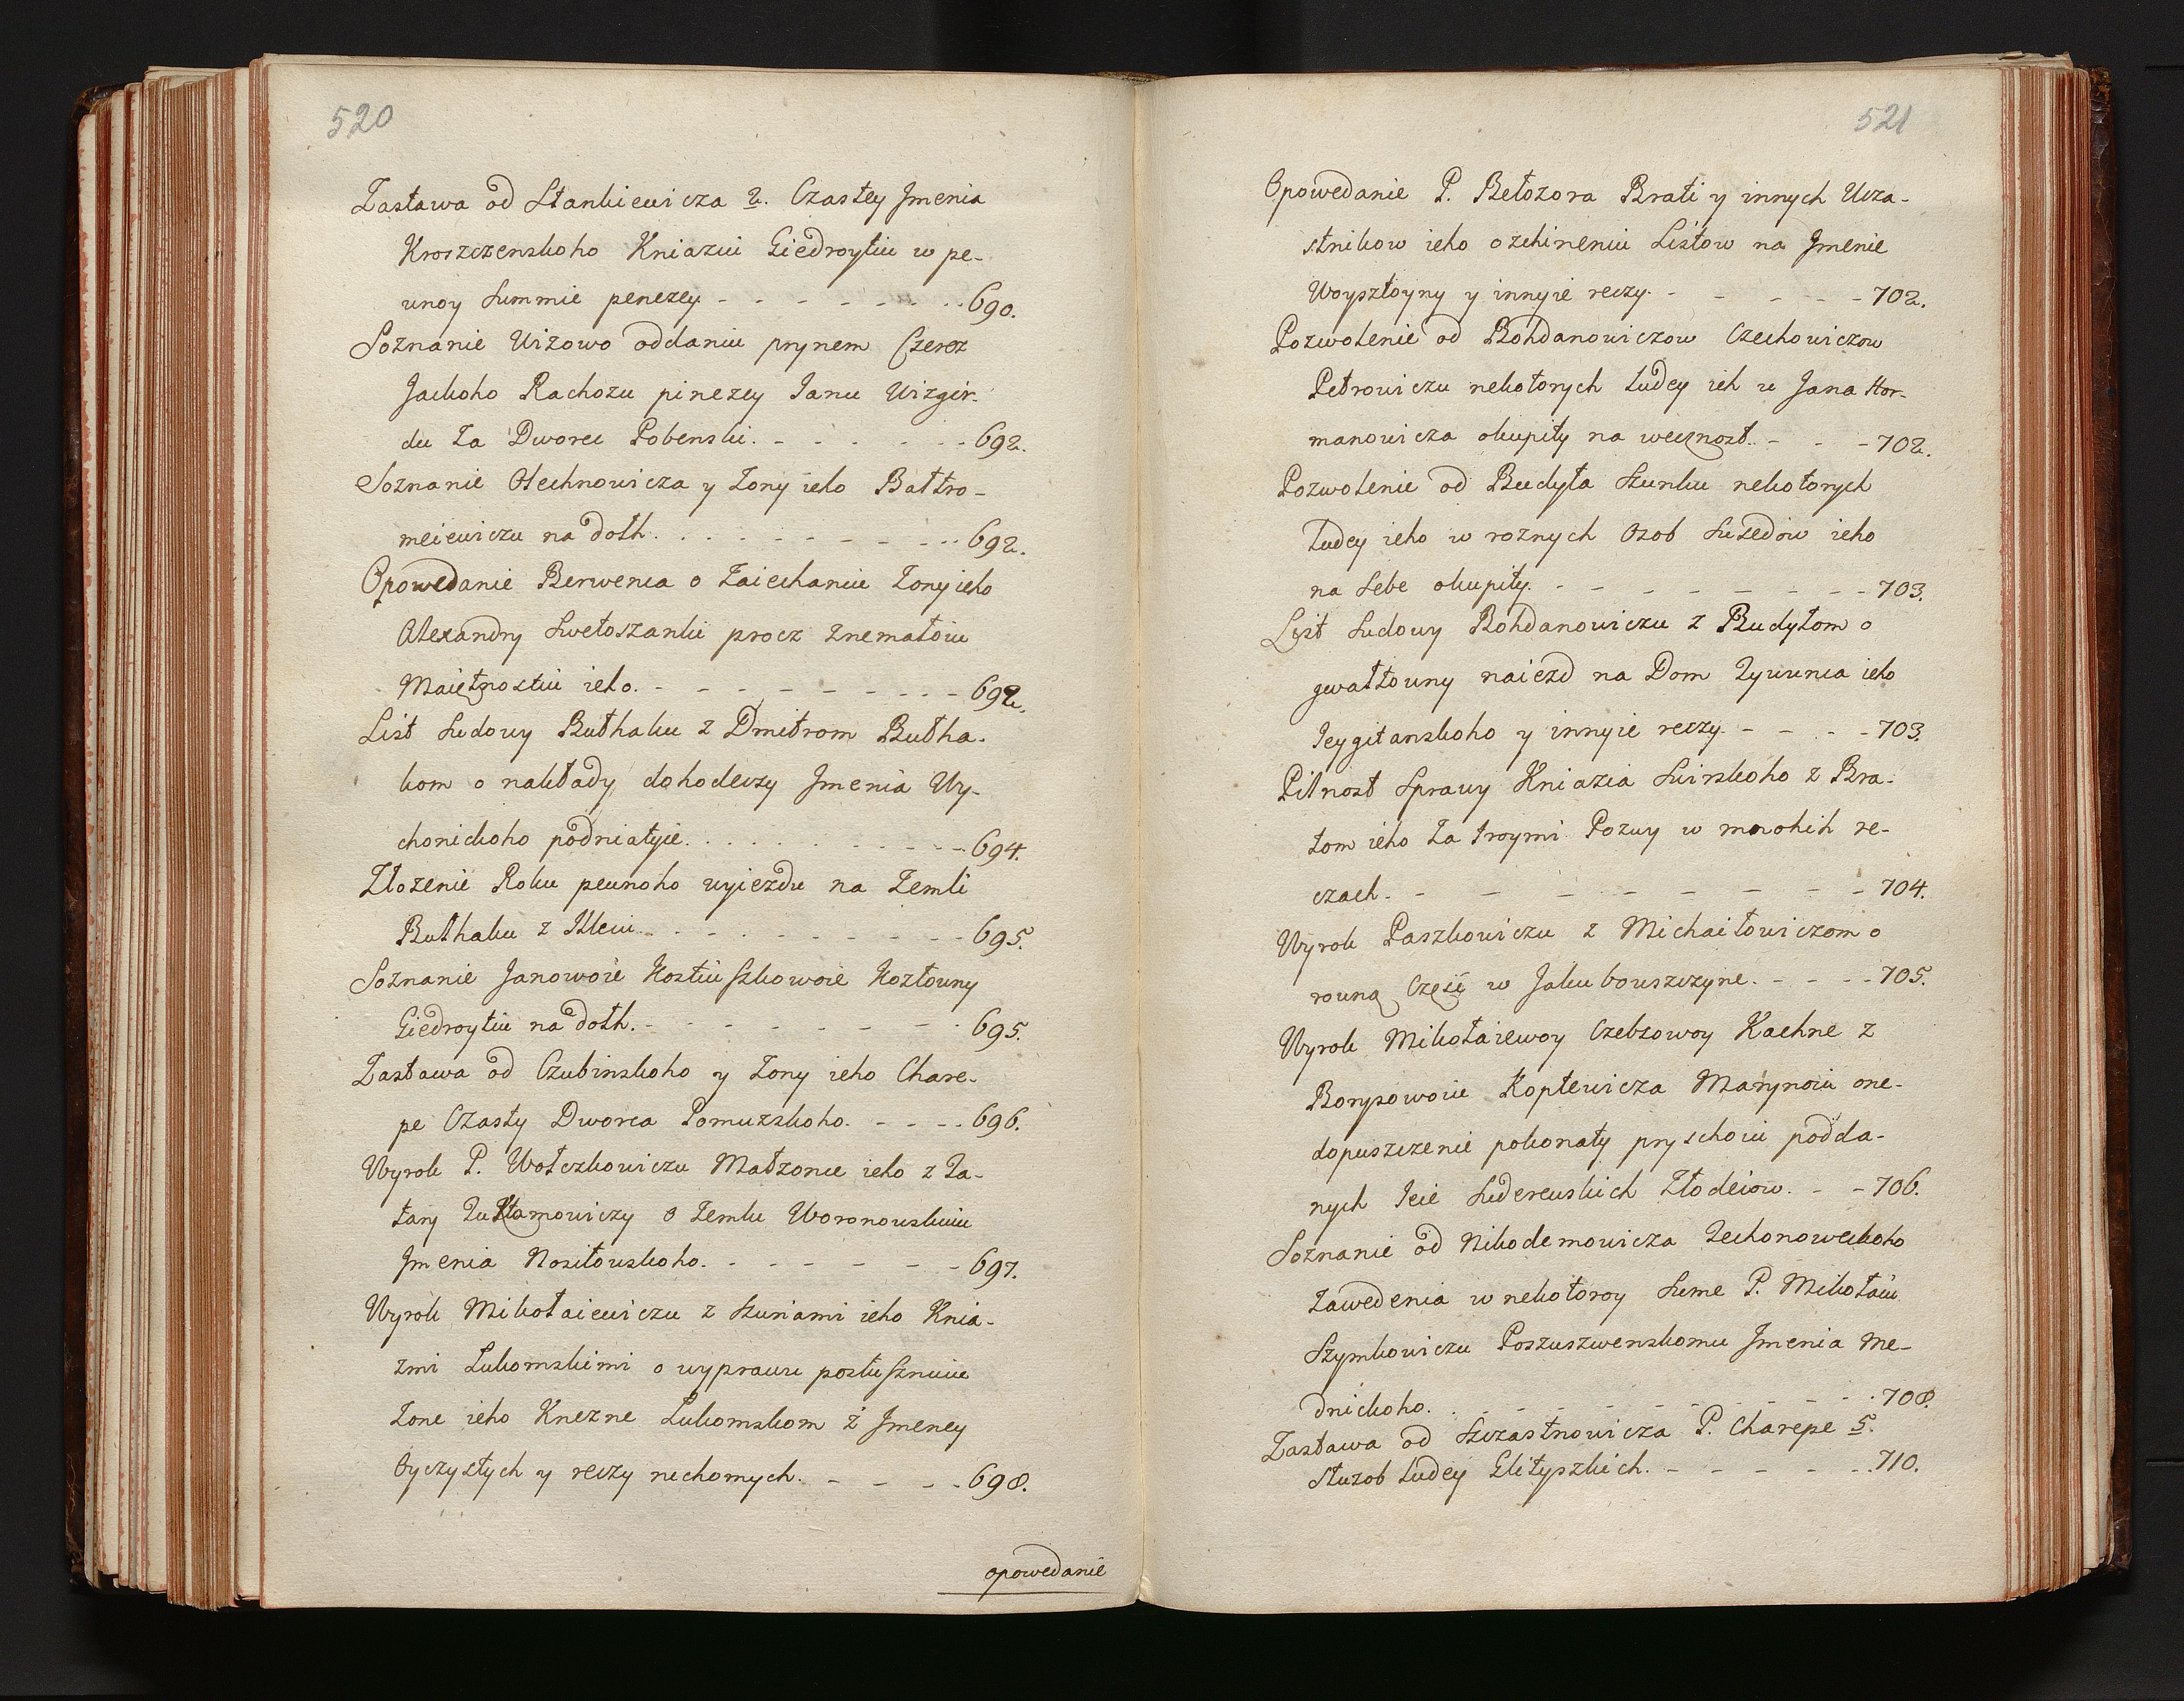 520
Zastawa od Stankiewicza 2. Czastey Jmenia
Kroszczenskoho Kniaziu Giedroytiu w pe-
unoy Summie penezey - - - - - - - 690.
Soznanie Uizowo oddaniu prynem Czerez
Jackoho Rachozu pinezey Janu Wizgir-
du Za Dworec Pobenski. - - - - - - 692.
Soznanie Olechnowicza y Zony ieho Bałtro-
meiewiczu na dołh. . . . - - - - - 692.
Opowedanie Berwenca o Zaiechaniu Zony ieho
Alexandry Swetoszanki procz Znematoiu
Maiętnostiu ieho. - - - - - - - - 692.
List Sudowy Buthaku z Dmitrom Butha-
kom o nakłady dohodeczy Jmenia Wy-
chonickoho podniatyie. . . . . . - - - 694.
Złozenie Roku peunoho uyiezdu na Zemli
Buthaku z Illeiu. . - - - - - - - 695.
Soznanie Janowoie Kostiuszkowoie Kozłouny
Giedroytiu na dołh. - - - - - - - - 695.
Zastawa od Czubinskoho y Zony ieho Chare-
pe Czasty Dworca Pomuzskoho. - - - - 696.
Wyrok P. Wołczkowiczu Małzonce ieho z Ta-
tary Zukłamowiczy o Zemlu Woronouskuiu
Jmenia Nositouskoho. - - - - - - - 697.
Wyrok Mikołaiewiczu z Szuriami ieho Knia-
zmi Lukomskimi o wyprawu posłuszniue
Zone ieho Knezne Lukomskom z Jmeney
Oyczystych y reczy ruchomych. - - - - 698.
opowedanie
521
Opowedanie P. Bełozora Brati y innych Ucza-
stnikow ieho o zhineniu Listow na Jmenie
Woysztoyny y innyie reczy. - - - - - 702.
Pozwolenie od Bohdanowiczow Czechowiczow
Petrowiczu nekotorych Ludey ich u Jana Hor-
manowicza okupity na wecznost. - - - 702.
Pozwolenie od Budyła Szunku nekotorych
Ludey ieho w roznych Osob Susedow ieho
na Sebe okupity. - - - - - - - - - 703.
List Sudowy Bohdanowiczu z Budyłom o
gwałtouny naiezd na Dom Zywunca ieho
Jeygitanskoho y innyie reczy. - - - - 703.
Pilnost Sprawy Kniazia Swirskoho z Bra-
tom ieho Za troymi Pozwy w mnohih re-
czach. - - - - - - - - - 704.
Wyrok Paszkowiczu z Michaiłowiczom o
rouną Część w Jakubouszczyne. - - - - 705.
Wyrok Mikołaiewoy Czebsowoy Kachne z
Borysowoiu Koptewicza Marynoiu one-
dopuszczenie pokonaty pryschoiu podda-
nych Jeie Suderewskich Złodeiow. - - 706.
Soznanie od Nikodemowicza Zechonoweckoho
Zawedenia w nekotoroy Sume P. Mikołaiu
Szymkowiczu Poszuszwenskomu Jmenia Me-
dnickoho. . - - - - - - - - 708.
Zastawa od Szczastnowicza P. Charepe 5.
Słuzob Ludey Elityszkich. - - - - - - 710.